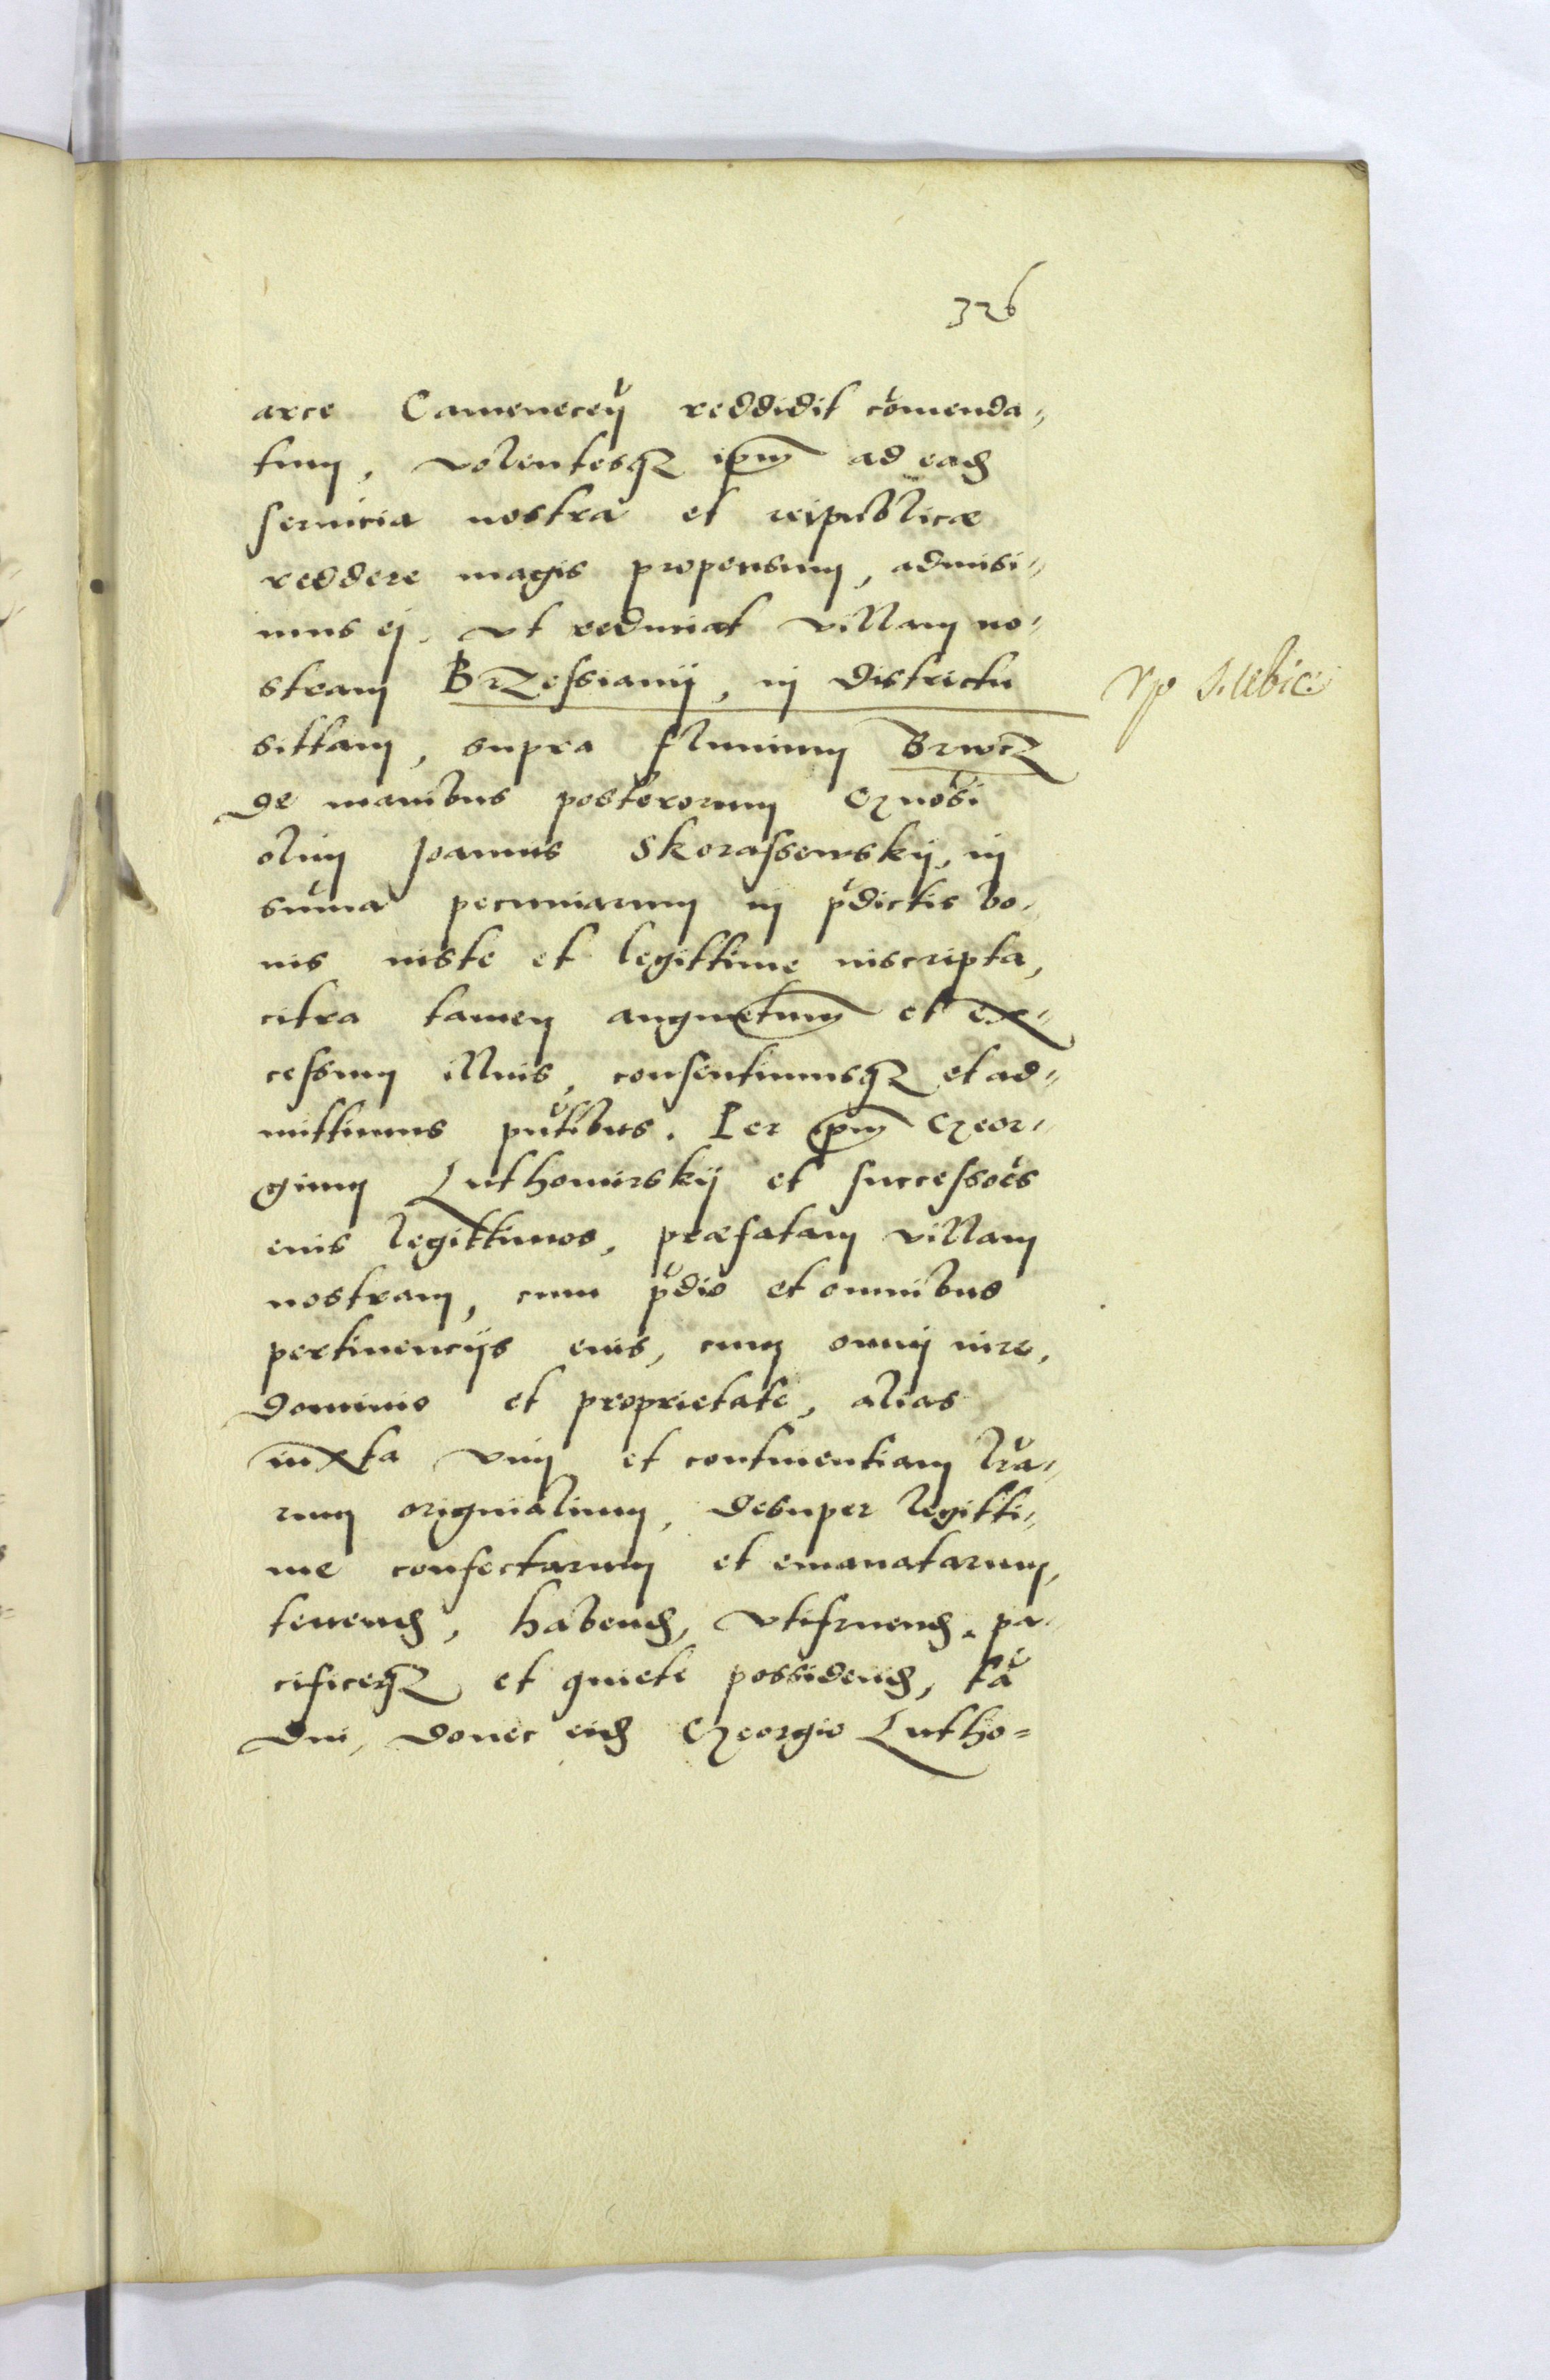 326
arce Cameneceñ reddidit com̃enda-
tum, volentesq̃ ip̃m ad ead̃
seruicia nostra et reipublicæ
reddere magis propensum, admisi-
mus ei, vt redimat villam no-
stram Brzessiany, in districtu
sittam, supra fluuium Brwcz
de manibus posterorum Gñosi
olim Joannis Skorassewsky, in
sum̃a pecuniarum in p̃dictis bo-
nis iuste et legittime inscripta,
citra tamen augmẽtum et ex-
cessum illius, consentimusq̃ et ad-
mittimus p̃ntibus. Per ip̃m Geor-
gium Luthomirsky et successo͠es
eius legittimos, præfatam villam
nostram, cum p̃dio et omnibus
pertinencijs eius, cum omni iure,
dominio et proprietate, alias
iuxta vim et continentiam l̃ra-
rum originalium, desuper legitti-
me confectarum et emanatarum,
tenend̃, habend̃, vtifruend̃, pa-
cificeq̃ et quiete possidend̃, tã
diu, donec eid̃ Georgio Lutho=